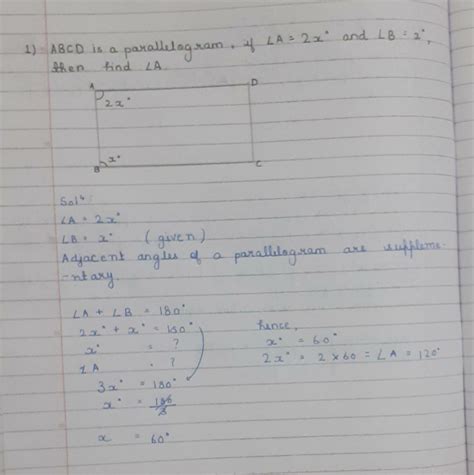 1) ABCD is a parallelogram, if ∠A = 2x° and ∠B = x°,
then find ∠A.
A D
2x°
x°
B C
Solⁿ:
∠A = 2x°
∠B = x° (given)
Adjacent angles of a parallelogram are suppleme-
-ntary.
∠A + ∠B = 180°
2x° + x° = 180°
x° = ?
∠A = ?
3x° = 180°
x° = 180/3
x = 60°
hence,
x° = 60°
2x° = 2 × 60 = ∠A = 120°